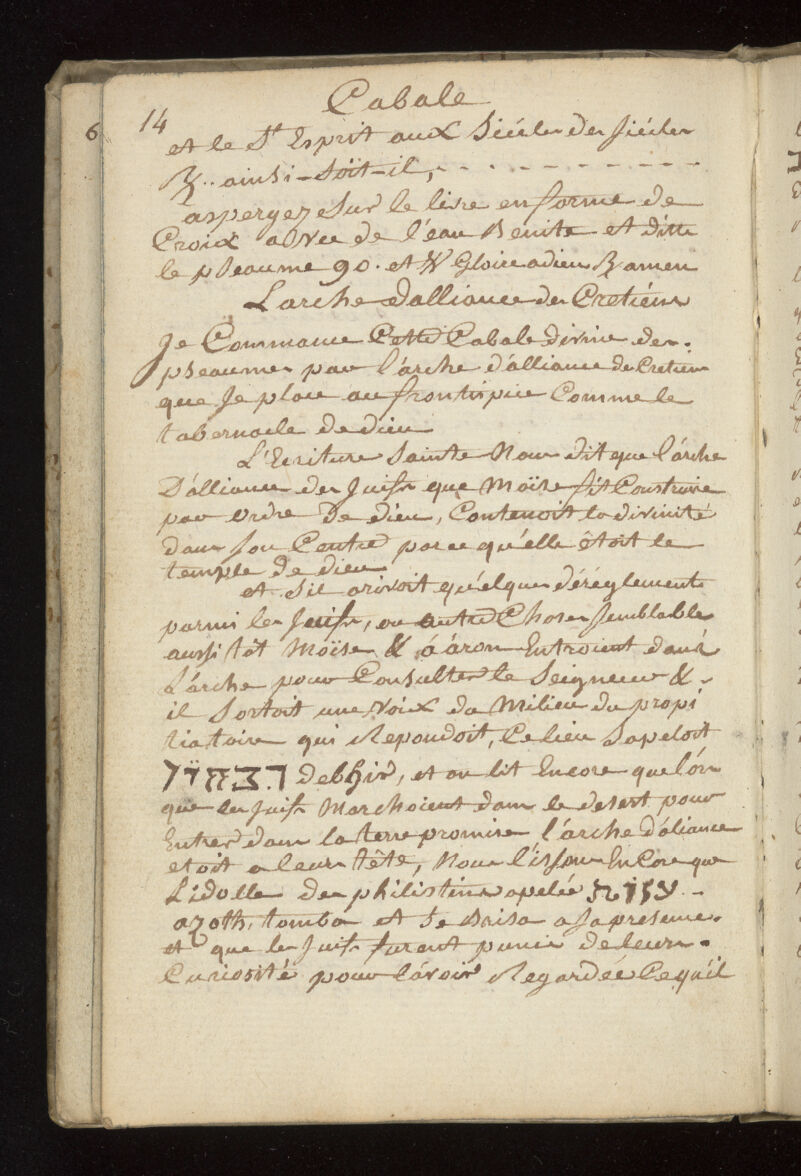 Cabale
14
et le St Esprit aux Siécles des siécles
R. ainsi-soit-il,
aspergez sur le livre en forme de
Croix avec de l'eau Benite et ditte
le pseaume 90. et Gloire a dieu R amen
L'arche d'alliance des Cretiéns
Je Commance Cette Cabale divine des
pseaumes par l'arche d'alliance des Cretiens
que Je place au frontispice Comme le
tabernacle de dieu
L'Ecriture Sainte Nous dit que l'arche
D'alliance des Juifs que Moïse fit Construire
par ordre De dieu, Contenoit la divinité
dans son Centre parce qu'elle étoit le
temple de dieu
et s'il arivoit quélques déréglements
parmi les Juifs, ou autre Choses semblable
aussi tôt Moïse & ááron Entroient dans
L'arche pour Consulter le Seigneur &
il Sortoit une voix du Milieu du propi
tiatoire qui Repondoit, Ce lieu s'apeloit
debhir, et on lit Encore que lórs
que les Juifs Marchoient dans le desert pour
Entrer dans la terre promise l'arche d'áliance
etoit a leur tête, Nous lissons Encore que
L'idolle des philistins apelée
azoth, tomba et se Brisa a sa presence
et que les Juifs furent punis de leurs
Curiosité pour l'avoir Regardée Ce qu'il
6